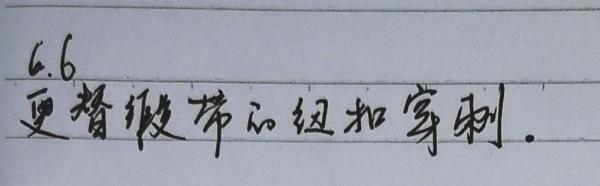 6.6
更督缎带的纽扣穿刺.